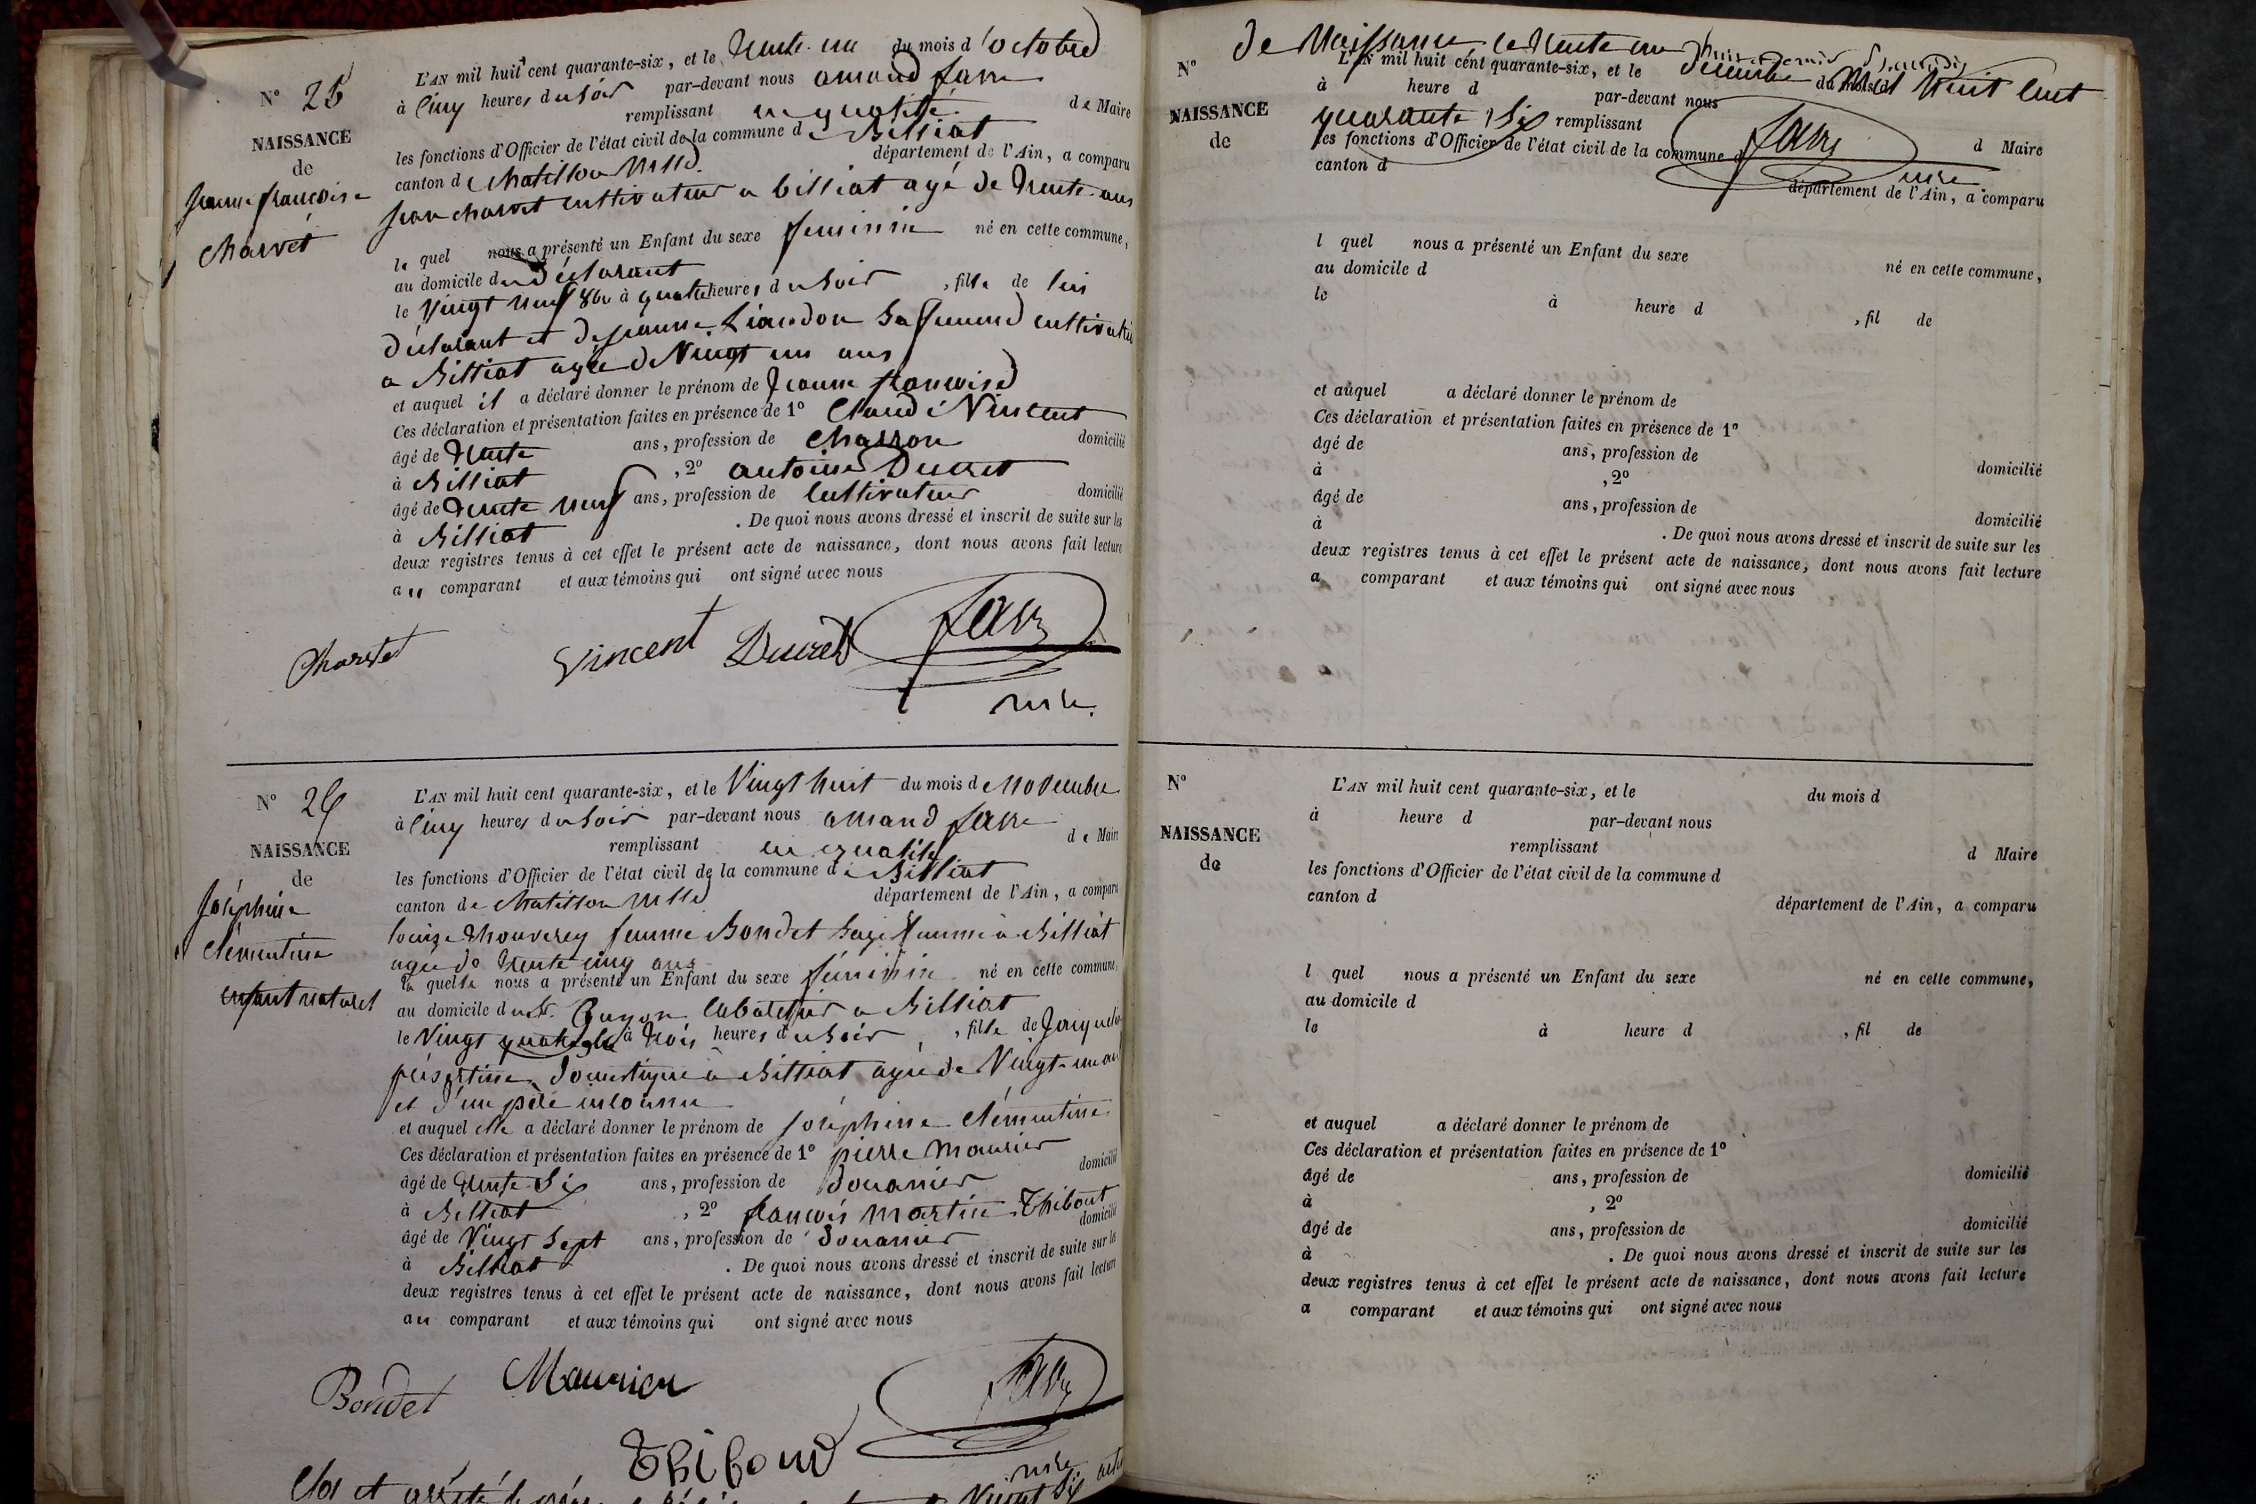 N° 25
NAISSANCE
de
Jeanne françoise
Charvet
L'AN mil huit cent quarante-six, et le trente un du mois d'octobre
à cinq heures du soir par-devant nous amand favre
remplissant en qualité de Maire
les fonctions d'Officier de l'état civil de la commune de Billiat
canton de chatillon Mlle département de l'Ain, a comparu
jean charvet cultivateur a billiat agé de trente ans
le quel nous a présenté un Enfant du sexe feminin né en cette commune,
au domicile du déclarant
le vingt neuf 8bre à quatre heures du soir, fille de lui
déclarant et de jeanne Liaudon sa femme cultivatrice
a Billiat agée de Vingt un ans
et auquel il a déclaré donner le prénom de Jeanne françoise
Ces déclaration et présentation faites en présence de 1° Claude Vincent
âgé de trente ans, profession de charron domicilié
à Billiat, 2° antoine Ducret
âgé de trente neuf ans, profession de cultivateur domicilié
à Billiat. De quoi nous avons dressé et inscrit de suite sur les
deux registres tenus à cet effet le présent acte de naissance, dont nous avons fait lecture
au comparant et aux témoins qui ont signé avec nous
Charvet Vincent Ducret favre
mre.
N° 26
NAISSANCE
de
Joséphine
Clémentine
enfant naturel
L'AN mil huit cent quarante-six, et le Vingt huit du mois de novembre
à cinq heures du soir par-devant nous amand favre
remplissant en qualité de Maire
les fonctions d'Officier de l'état civil de la commune de Billiat
canton de chatillon Mlle département de l'Ain, a comparu
louise thouverey femme Bondet sage femme à Billiat
agée de trente cinq ans
la quelle nous a présenté un Enfant du sexe féminin né en cette commune,
au domicile du sr. Guyon cabaretier a Billiat
le Vingt quatre 9bre à trois heures du soir, fille de
domestique à Billiat agée de Vingt-un an
et d'un père inconnu
et auquel elle a déclaré donner le prénom de Joséphine Clémentine
Ces déclaration et présentation faites en présence de 1° pierre Maurier
âgé de trente six ans, profession de Douanier domicilié
à Billiat, 2° françois martin Thibout
âgé de Vingt sept ans, profession de Douanier domicilié
à Billiat. De quoi nous avons dressé et inscrit de suite sur les
deux registres tenus à cet effet le présent acte de naissance, dont nous avons fait lecture
au comparant et aux témoins qui ont signé avec nous
Bondet Maurier favre
Thiboud mre
Clos et arrété Vingt Six actes
de Naissance, le trente un décembre Mil huit cent
quarante Six
favre
mre
N°
NAISSANCE
de
L'AN mil huit cent quarante-six, et le du mois d
à heure d par-devant nous
remplissant d Maire
les fonctions d'Officier de l'état civil de la commune d
canton d département de l'Ain, a comparu
l quel nous a présenté un Enfant du sexe né en cette commune,
au domicile d
le à heure d, fil de
et auquel a déclaré donner le prénom de
Ces déclaration et présentation faites en présence de 1°
âgé de ans, profession de domicilié
à, 2°
âgé de ans, profession de domicilié
à. De quoi nous avons dressé et inscrit de suite sur les
deux registres tenus à cet effet le présent acte de naissance, dont nous avons fait lecture
a comparant et aux témoins qui ont signé avec nous
N°
NAISSANCE
de
L'AN mil huit cent quarante-six, et le du mois d
à heure d par-devant nous
remplissant d Maire
les fonctions d'Officier de l'état civil de la commune d
canton d département de l'Ain, a comparu
l quel nous a présenté un Enfant du sexe né en cette commune,
au domicile d
le à heure d, fil de
et auquel a déclaré donner le prénom de
Ces déclaration et présentation faites en présence de 1°
âgé de ans, profession de domicilié
à, 2°
âgé de ans, profession de domicilié
à. De quoi nous avons dressé et inscrit de suite sur les
deux registres tenus à cet effet le présent acte de naissance, dont nous avons fait lecture
a comparant et aux témoins qui ont signé avec nous